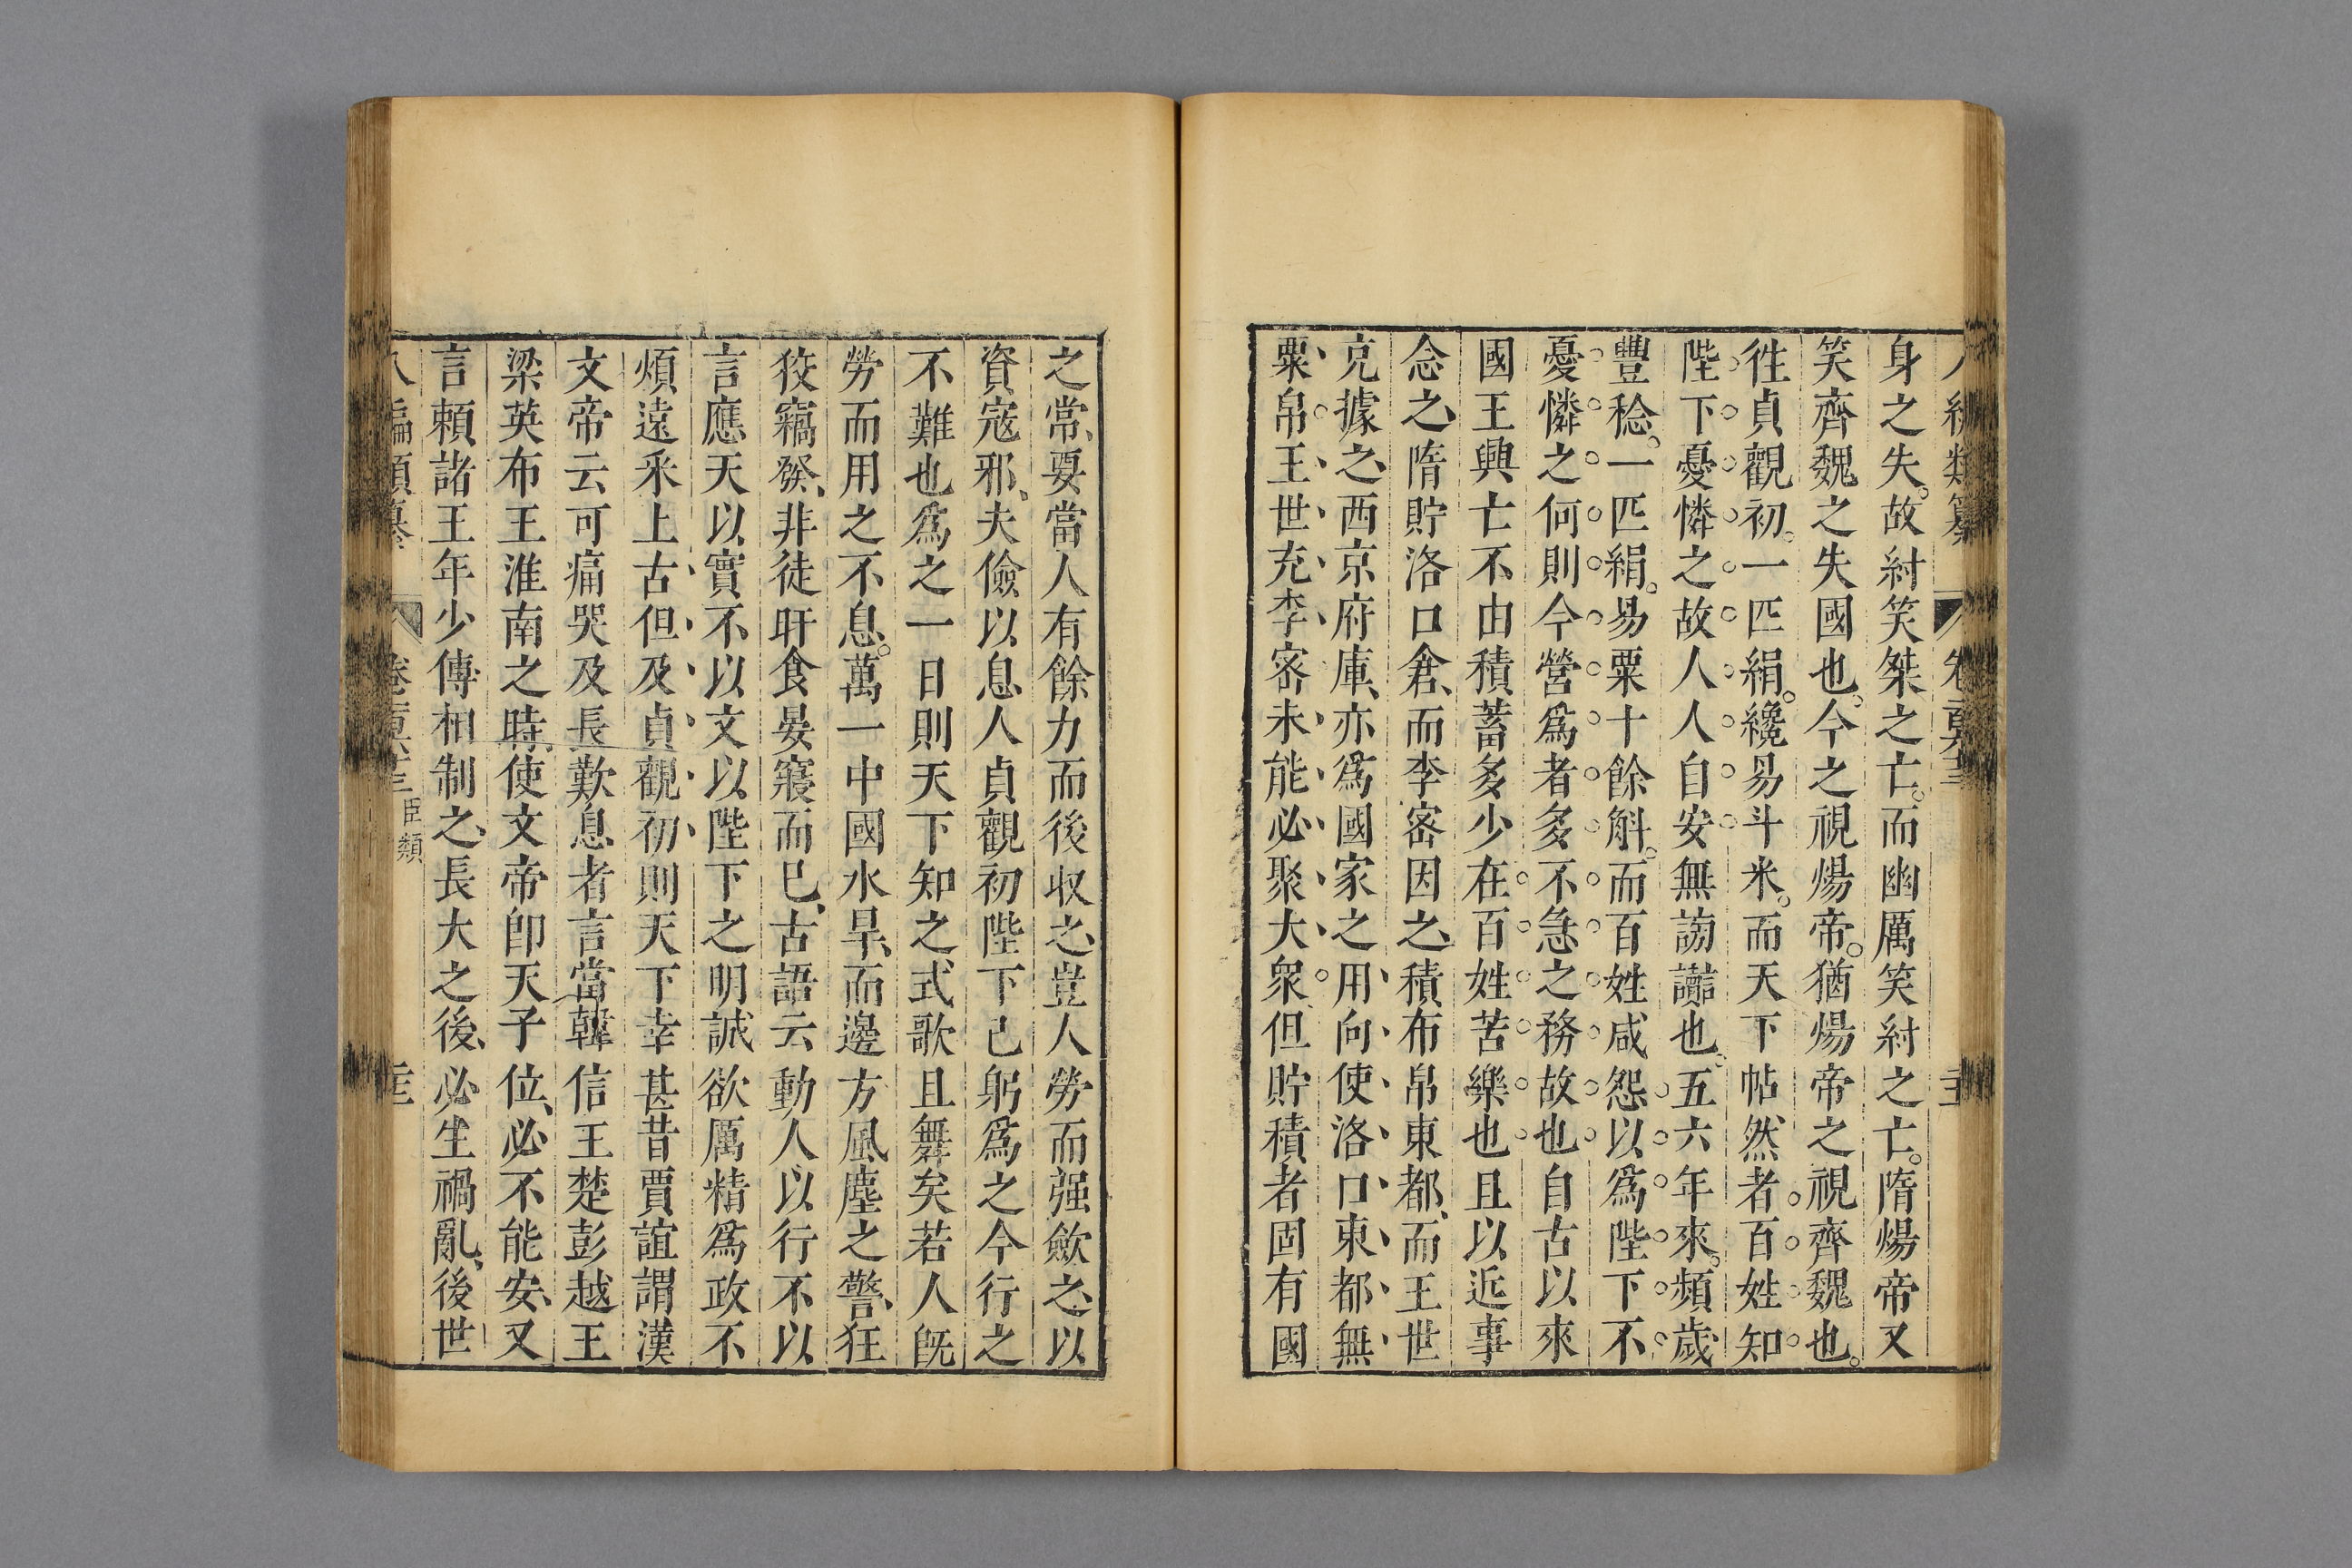 身之失。故紂笑桀之亡。而幽厲笑紂之亡。隋煬帝又
笑齊魏之失國也。今之視煬帝。猶煬帝之視齊魏也。
徃貞觀初。一匹絹。纔易斗米。而天下帖然者百姓知
陛下憂憐之故人人自安無謗讟也。五六年來。頻歲
豐稔。一匹絹。易粟十餘斛。而百姓咸怨以爲陛下不
憂憐之何則今營爲者多不急之務故也自古以來
國王興亡不由積蓄多少在百姓苦樂也且以近事
念之、隋貯洛口倉、而李密因之、積布帛東都、而王世
克據之、西京府庫、亦爲國家之用向使洛口東都無
粟帛王世充李密未能必聚大衆、但貯積者固有國
之常、要當人有餘力而後收之、豈人勞而强斂之、以
資寇邪、夫儉以息人貞觀初陛下已躬爲之今行之
不難也爲之一日則天下知之式歌且舞矣若人旣
勞而用之不息。萬一中國水旱、而邊方風塵之警、狂
狡竊發、非徒旰食晏寢而已、古語云動人以行不以
言應天以實不以文以陛下之明誠欲厲精爲政不
煩遠采上古但及貞觀初則天下幸甚昔賈誼謂漢
文帝云可痛哭及長歎息者言當韓信王楚彭越王
梁英布王淮南之時、使文帝卽天子位、必不能安、又
言賴諸王年少傅相制之、長大之後、必生禍亂、後世
臣類